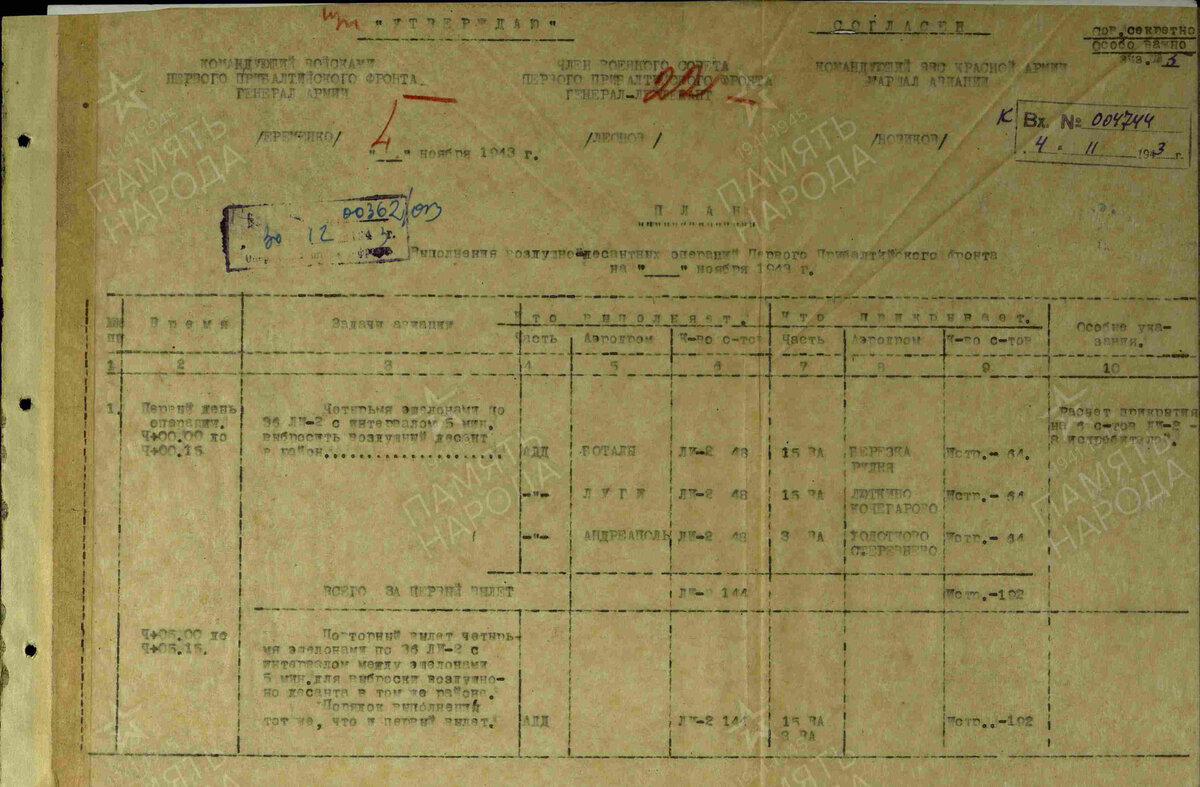 "УТВЕРЖДАЮ"
СОГЛАСЕН
сов.секретно
особо важно
экз.№ 5
КОМАНДУЮЩИЙ ВОЙСКАМИ
ПЕРВОГО ПРИБАЛТИЙСКОГО ФРОНТА
ГЕНЕРАЛ АРМИИ
ЧЛЕН ВОЕННОГО СОВЕТА
ПЕРВОГО ПРИБАЛТИЙСКОГО ФРОНТА
ГЕНЕРАЛ-ЛЕЙТЕНАНТ
КОМАНДУЮЩИЙ ВВС КРАСНОЙ АРМИИ
МАРШАЛ АВИАЦИИ
/ЕРЕМЕНКО/
/ЛЕОНОВ /
/НОВИКОВ/
"__" ноября 1943 г.
Вх. № 004744
4 . 11 1943 г.
00362/оп
30 12 1943 г.
П Л А Н
Выполнения воздушно-десантных операций Первого Прибалтийского фронта
на "____" ноября 1943 г.
№№ пп
В р е м я
Задачи авиации
Кто выполняет.
Кто прикрывает.
Особые ука-
зания.
Часть Аэродром К-во с-тов Часть Аэродром К-во с-тов
1 2 3 4 5 6 7 8 9 10
1. Первый день
операции.
Ч+00.00 до
Ч+00.15
Четырьмя эшелонами по
36 ЛИ-2 с интервалом 5 мин.
выбросить воздушный десант
в район
АДД БОТАЛИ ЛИ-2 48 15 ВА БЕРЕЗКА
РУДНЯ
Истр.- 64.
Расчет прикрытия
на 6 с-тов ЛИ-2 -
8 истребителей.
-"- Л У Г И ЛИ-2 48 15 ВА ЛЮТКИНО
КОЧЕГАРОВО
Истр.- 64
-"- АНДРЕАПОЛЬ ЛИ-2 48 3 ВА
Истр.- 64
ВСЕГО ЗА ПЕРВЫЙ ВЫЛЕТ ЛИ-2 144 Истр.-192
Ч+05.00 до
Ч+05.15.
Повторный вылет четырь-
мя эшелонами по 36 ЛИ-2 с
интервалом между эшелонами
5 мин.для выброски воздушно-
но десанта в том же районе.
Порядок выполнения
тот же, что и первый вылет.
АДД ЛИ-2 144 15 ВА
3 ВА
Истр..-192
ПАМЯТЬ
НАРОДА
1941-1945